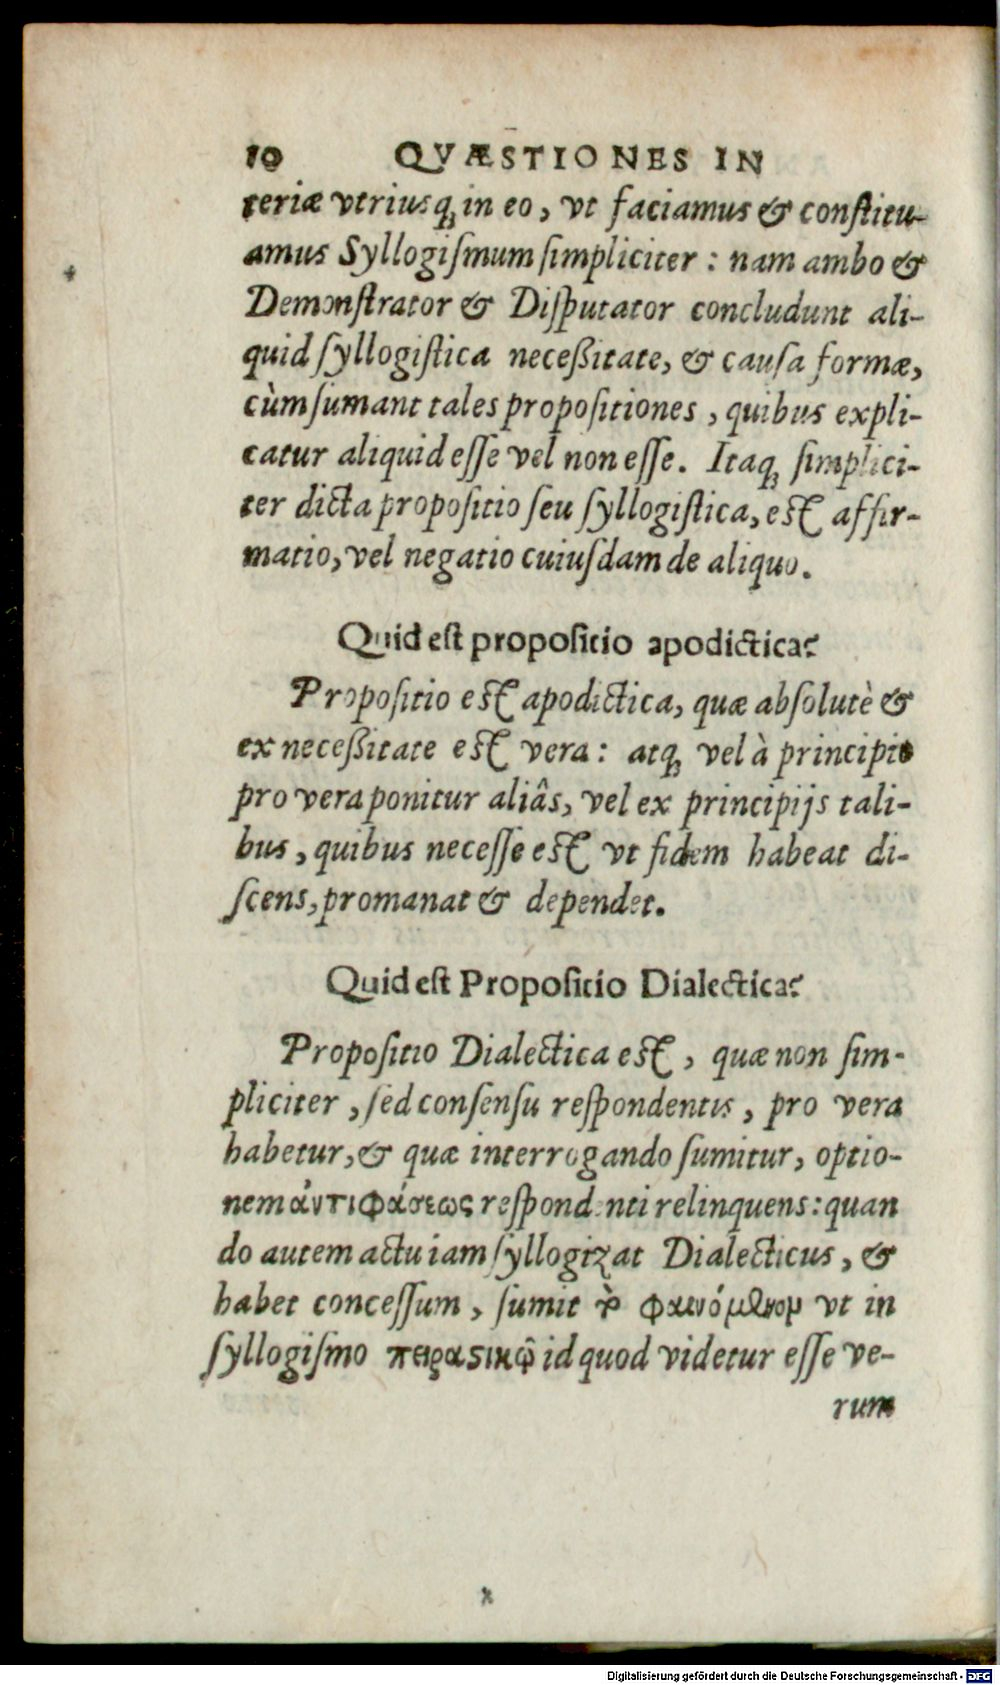 10 QVÆSTIONES IN
teriæ vtriusq́; in eo, vt faciamus & constitu-
amus Syllogiſmum ſimpliciter : nam ambo &
Demonſtrator & Diſputator concludunt ali-
quid ſyllogiſtica neceßitate, & cauſa formæ,
cùm ſumant tales propoſitiones, quibus expli-
catur aliquid eſſe vel non eſſe. Itaq; ſimplici-
ter dicta propoſitio ſeu ſyllogiſtica, eſt affir-
matio, vel negatio cuiuſdam de aliquo.
Quid eſt propoſitio apodictica?
Propoſitio eſt apodictica, quæ abſolutè &
ex neceßitate eſt vera: atq; vel à principio
pro vera ponitur aliâs, vel ex principijs tali-
bus, quibus neceſſe eſt vt fidem habeat di-
ſcens, promanat & dependet.
Quid eſt Propoſitio Dialectica?
Propoſitio Dialectica eſt, quæ non ſim-
pliciter, ſed conſenſu reſpondentis, pro vera
habetur, & quæ interrogando ſumitur, optio-
nem ἀντιφάσεως reſpondenti relinquens: quan
do autem actu iam ſyllogizat Dialecticus, &
habet conceſſum, ſumit τὸ φαινόμενον vt in
ſyllogiſmo πειραστικῷ id quod videtur eſſe ve-
rum
Digitalisierung gefördert durch die Deutsche Forschungsgemeinschaft - DFG